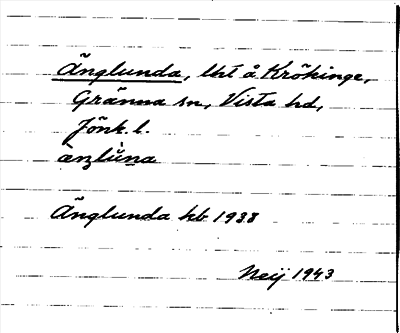 Änglunda, lht å Krökinge,
Gränna sn, Vista hd,
Jönk. l.
ànzlùna
Änglunda kb 1938
Neij 1943